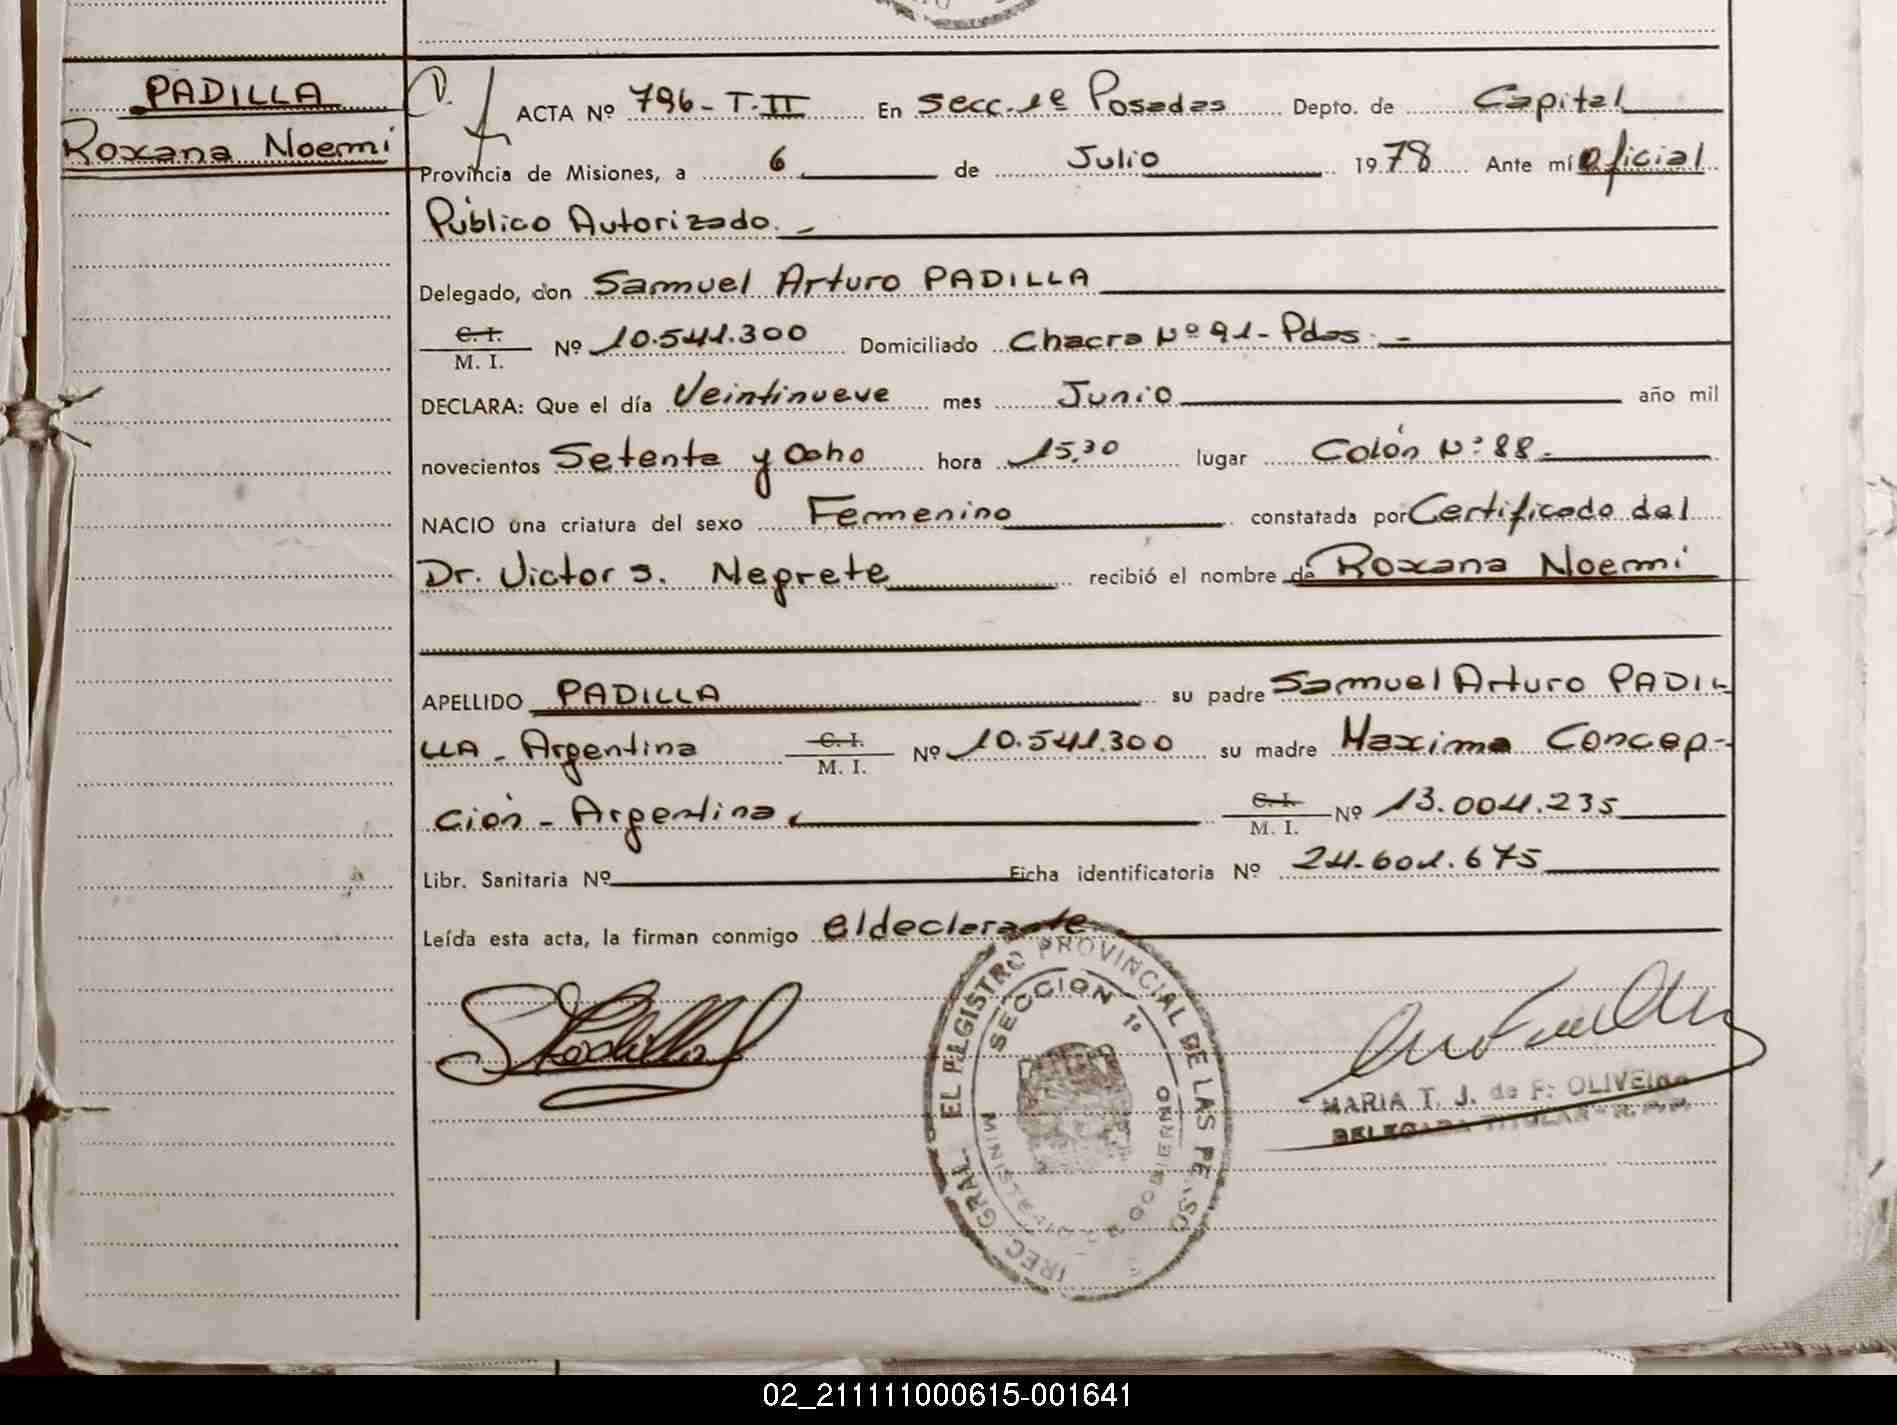 PADILLA
Roxana Noemi
ACTA Nº 796 - T. II En Secc. 1º Posadas Depto. de Capital
Provincia de Misiones, a 6 de Julio 1978 Ante mí Oficial
Público Autorizado. -
Delegado, don Samuel Arturo PADILLA
C. I.
M. I. Nº 10.541.300 Domiciliado Chacra Nº 91 - Pdas. -
DECLARA: Que el día Veintinueve mes Junio año mil
novecientos Setenta y Ocho hora 15,30 lugar Colón Nº 88. -
NACIO una criatura del sexo Femenino constatada por Certificado del
Dr. Victor S. Negrete recibió el nombre de Roxana Noemi
APELLIDO PADILLA su padre Samuel Arturo PADI-
LLA - Argentina C. I. M. I. Nº 10.541.300 su madre Maxima Concep-
ción - Argentina, C. I. M. I. Nº 13.004.235
Libr. Sanitaria Nº Ficha identificatoria Nº 24.601.675
Leída esta acta, la firman conmigo el declarante
SECCION 1º
REGISTRO PROVINCIAL DE LAS PE
GOBIERNO
MARIA T. J. de F. OLIVEIRA
DELEGADA TITULAR
02_211111000615-001641